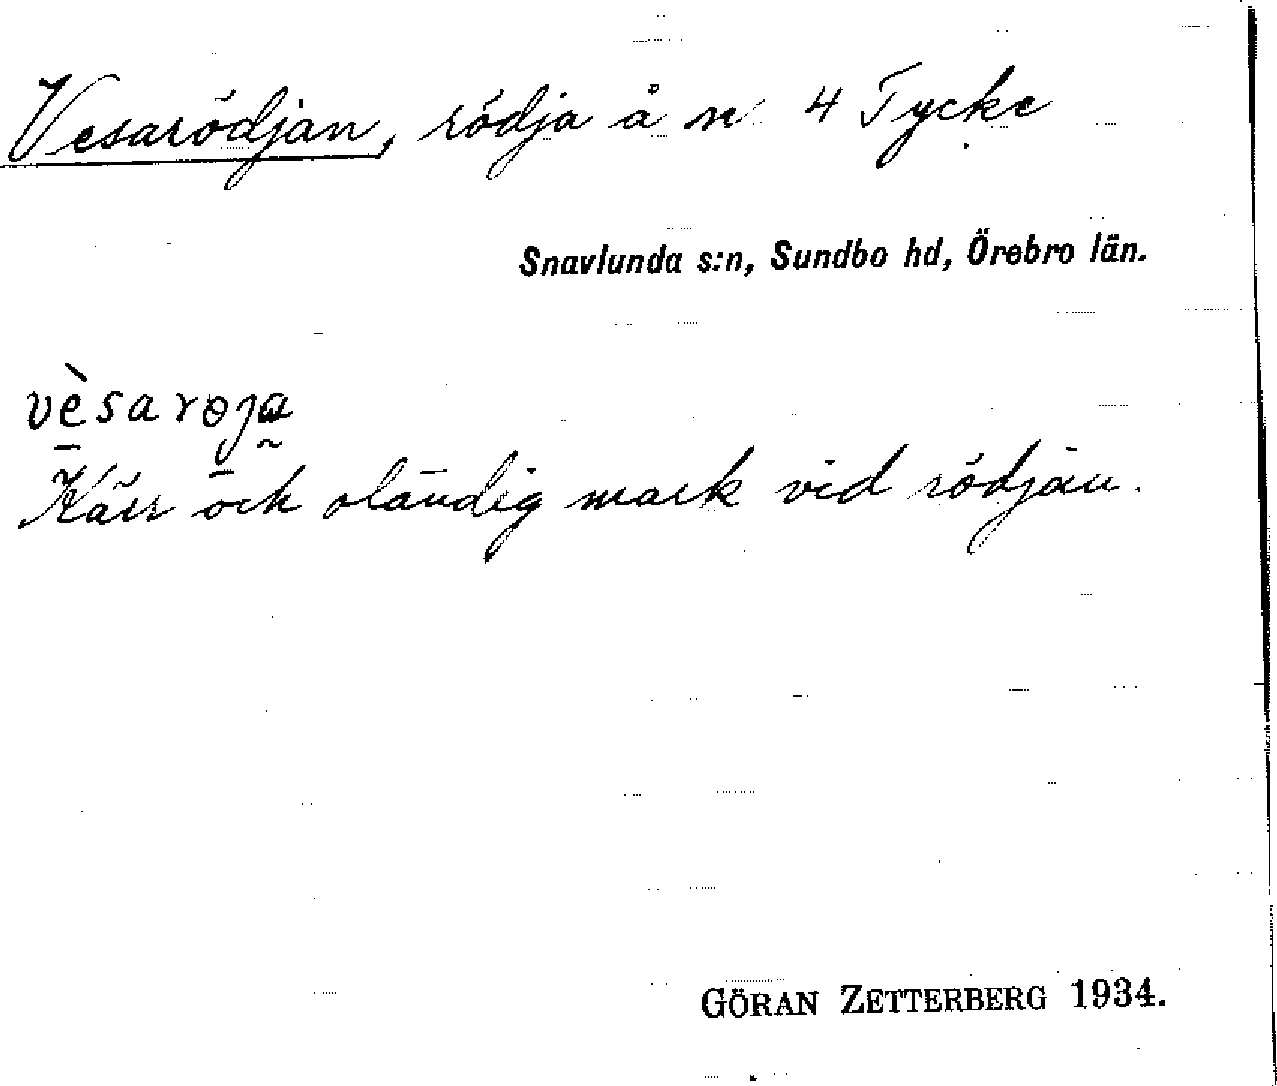 Vesarödjan, rödja å n 4 Tycke
Snavlunda s:n, Sundbo hd, Örebro län.
vèsarɵja
Kärr och oländig mark vid rödjan.
GÖRAN ZETTERBERG 1934.